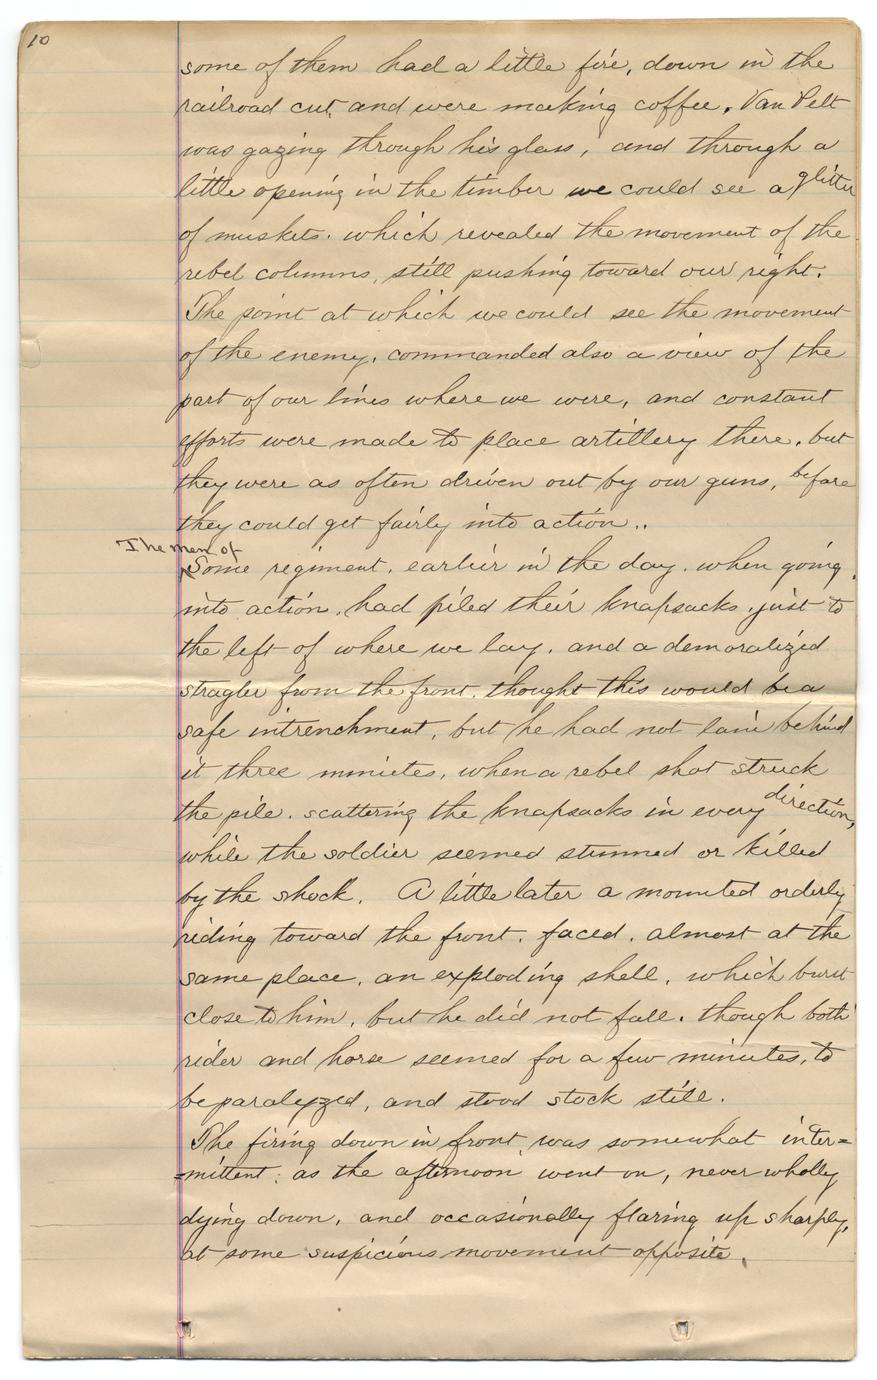 10
some of them had a little fire, down in the
railroad cut, and were making coffee. Van Pelt
was gazing through his glass, and through a
little opening in the timber we could see a glitter
of muskets. which revealed the movement of the
rebel columns, still pushing toward our right.
The point at which we could see the movement
of the enemy, commanded also a view of the
part of our lines where we were, and constant
efforts were made to place artillery there. but
they were as often driven out by our guns, before
they could get fairly into action..
The men of
Some regiment. earlier in the day. when going
into action. had piled their knapsacks. just to
the left of where we lay. and a demoralized
stragler from the front. thought this would be a
safe intrenchment, but he had not lain behind
it three minietes, when a rebel shot struck
the pile. scattering the knapsacks in every direction,
while the soldier seemed stunned or killed
by the shock. A little later a mounted orderly
riding toward the front. faced. almost at the
same place, an exploding shell, which burst
close to him, but he did not fall. though both
rider and horse seemed for a few minutes, to
be paralyzed, and stood stock still.
The firing down in front, was somewhat inter=
=mittent; as the afternoon went on, never wholly
dying down, and occasionally flaring up sharply,
at some suspicious movement opposite.